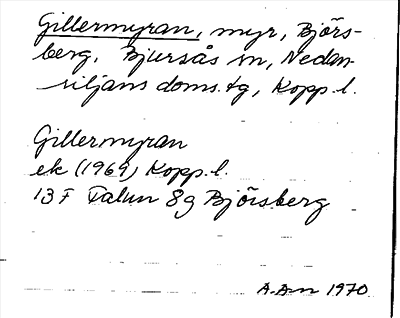 Gillermyran, myr, Björs-
berg, Bjursås sn, Nedan-
siljans doms.tg, Kopp.l.
Gillermyran
ek (1969) Kopp.l.
13 F Falun 8g Björsberg
A.An 1970